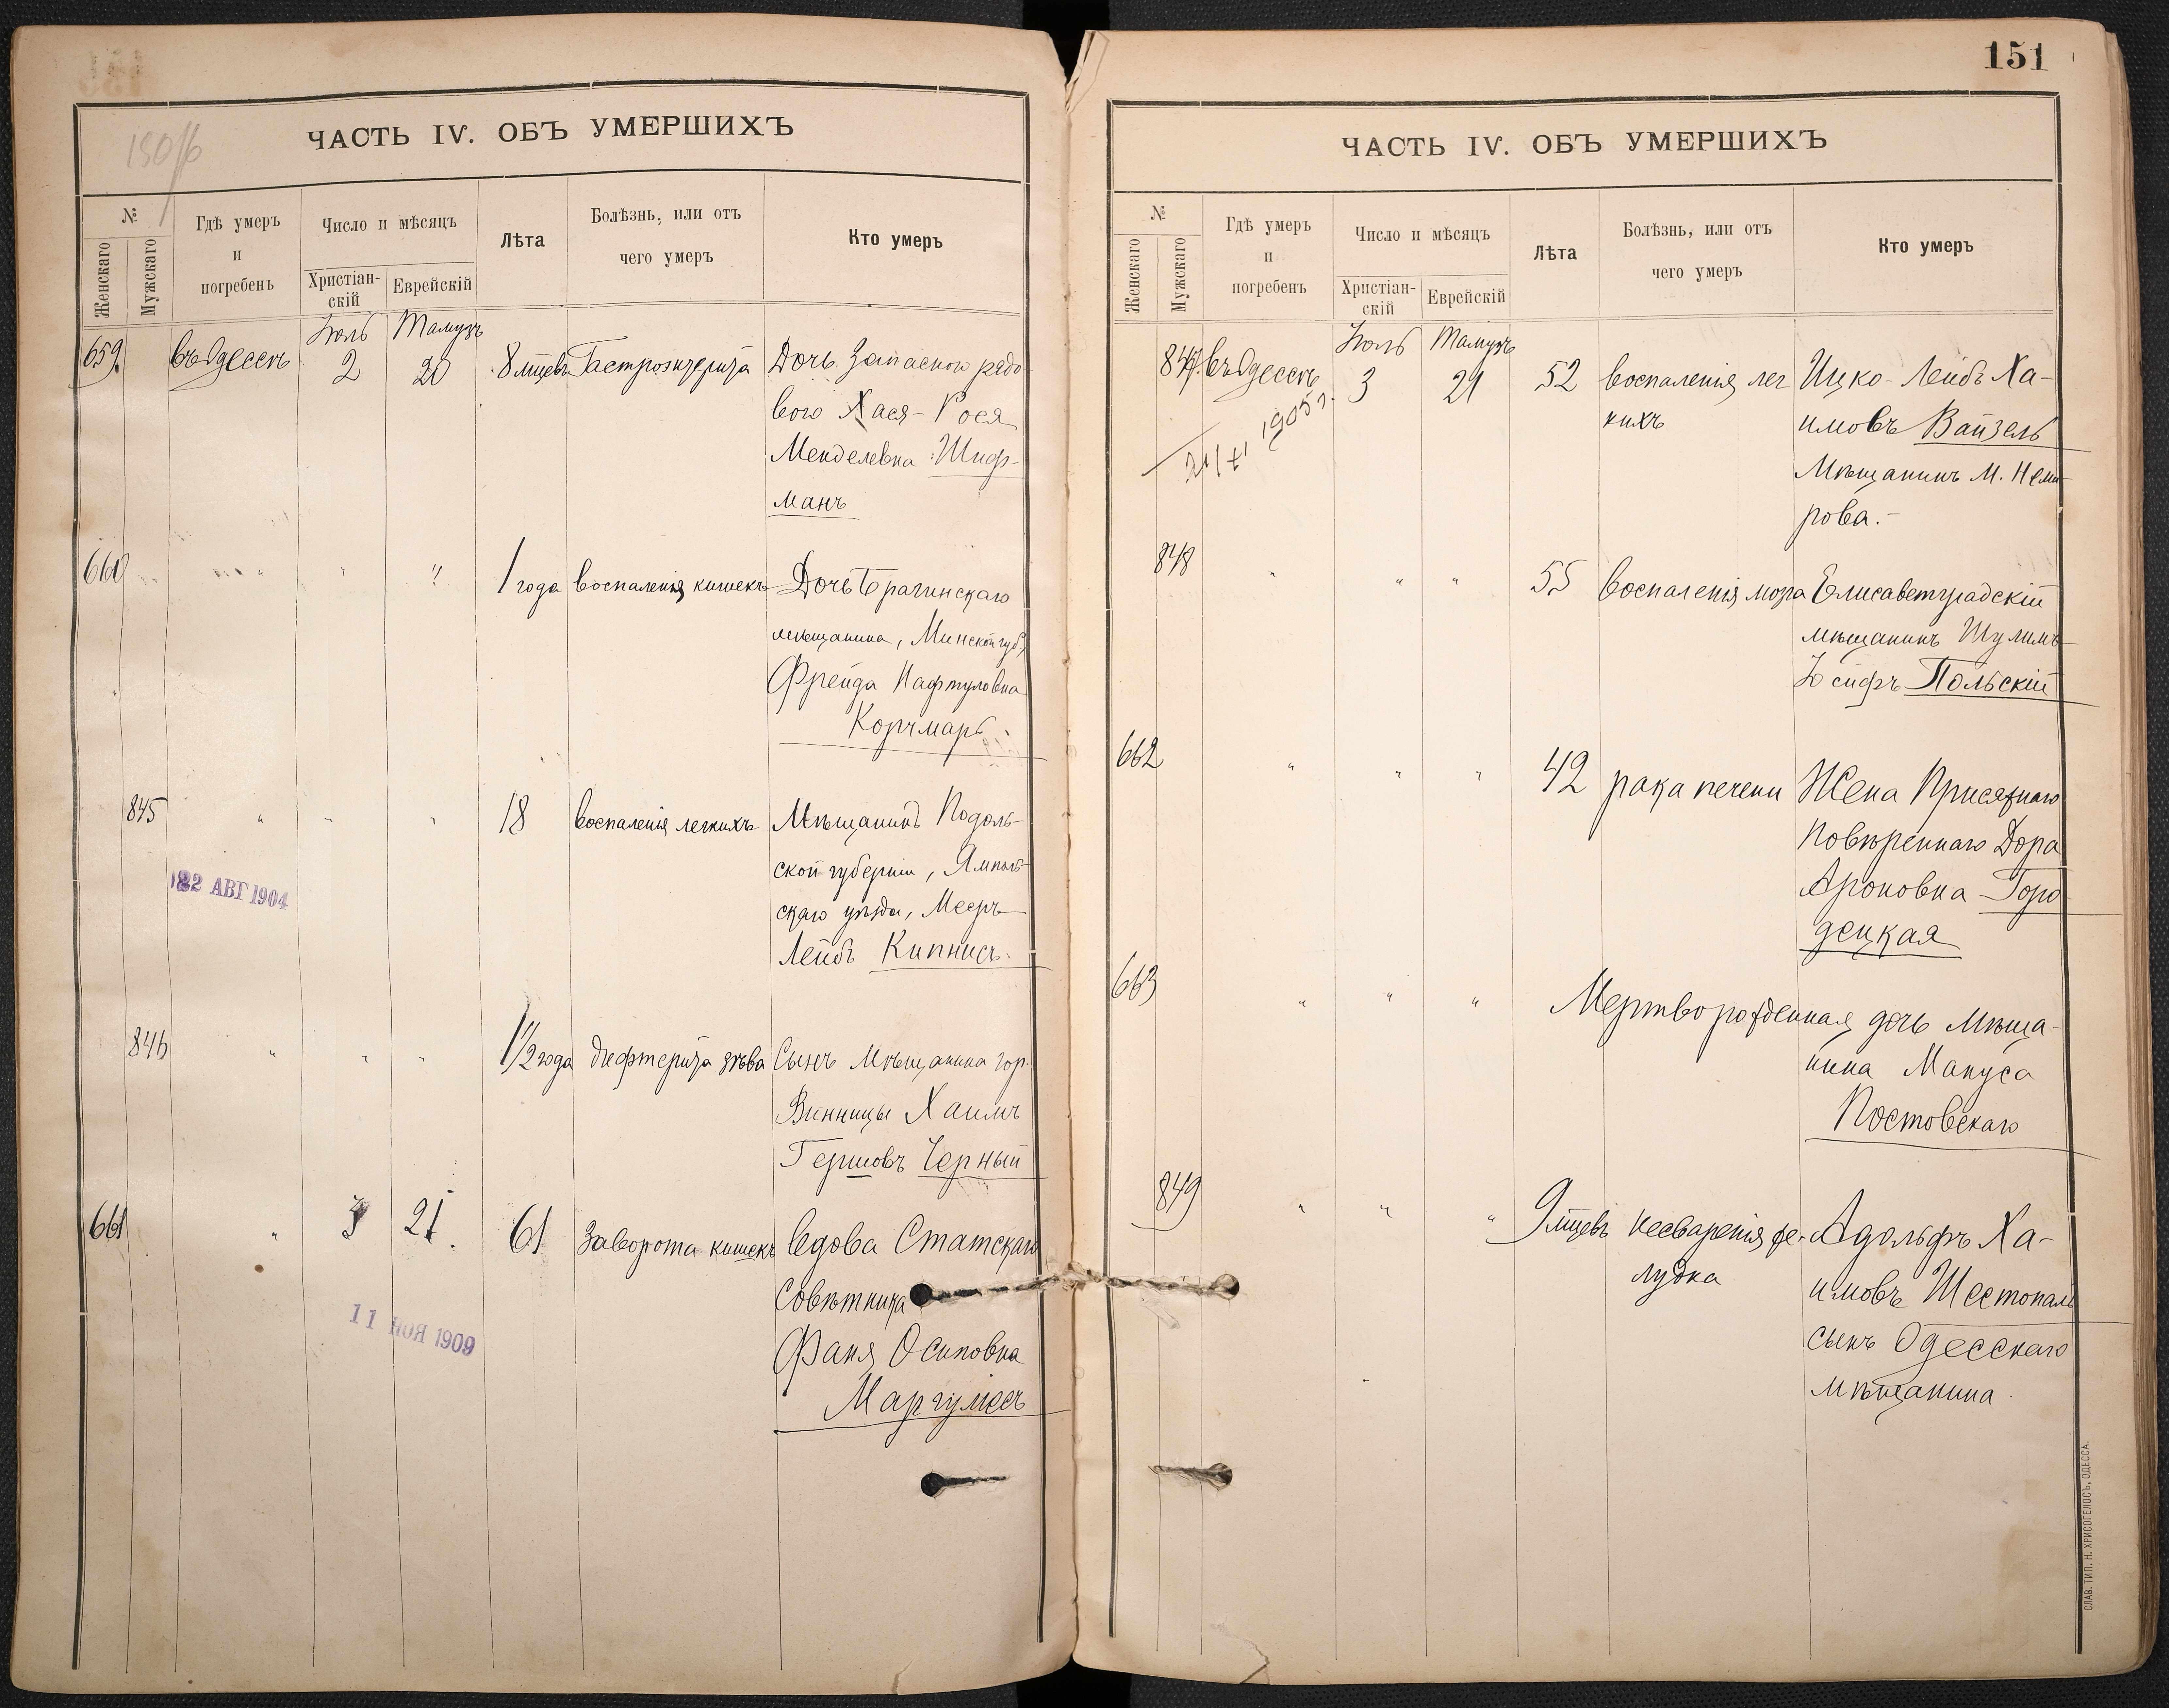 150/б
ЧАСТЬ IV. ОБЪ УМЕРШИХЪ
№
Женскаго
Мужскаго
Гдѣ умеръ
и
погребенъ
Число и мѣсяцъ
Христіан-
скій
Еврейскій
Лѣта
Болѣзнь, или отъ
чего умеръ
Кто умеръ
Іюль Тамузъ
659. въ Одессѣ 2 20 8 мцевъ Гастроэнтерита Дочь Запасного рядо-
вого Хася-Рося
Менделевна Шиф-
манъ
660 " " " 1 года воспаленія кишекъ Дочь Брагинскаго
мѣщанина, Минской губ.
Фрейда Нафтуловна
Корчмаръ.
845 " " " 18 воспаленія легкихъ Мѣщанинъ Подоль-
ской губерніи, Ямполь-
скаго уѣзда, Мееръ-
Лейбъ Кипнисъ.
22 АВГ 1904
846 " " " 1 1/2 года дифтерита зѣва Сынъ Мѣщанина гор.
Винницы Хаимъ
Гершовъ Черный
661 " 3 21. 61 Заворота кишекъ Вдова Статскаго
Совѣтника
Фаня Осиповна
Маргулісъ
11 НОЯ 1909
151
ЧАСТЬ IV. ОБЪ УМЕРШИХЪ
№
Женскаго
Мужскаго
Гдѣ умеръ
и
погребенъ
Число и мѣсяцъ
Христіан-
скій
Еврейскій
Лѣта
Болѣзнь, или отъ
чего умеръ
Кто умеръ
Іюль Тамузъ
847. въ Одессѣ 3 21 52 воспаленія лег Ицко-Лейбъ Ха-
кихъ имовъ Вайзель
Мѣщанинъ М. Неми-
рова.-
21/XI 1905 г.
848 " " " 55 воспаленія мозга Елисаветградскій
мѣщанинъ Шулимъ-
Іосифъ Польскій
662 " " " 42 рака печени Жена Присяжнаго
Повѣреннаго Дора
Ароновна Горо
децкая
663 " " " Мертворожденная дочь Мѣща-
нина Мануса
Постовскаго
849 " " " 9 мцевъ несваренія же- Адольфъ Ха-
лудка имовъ Шестопалъ
сынъ Одесскаго
мѣщанина.
СЛАВ. ТИП. Н. ХРИСОГЕЛОСЪ, ОДЕССА.